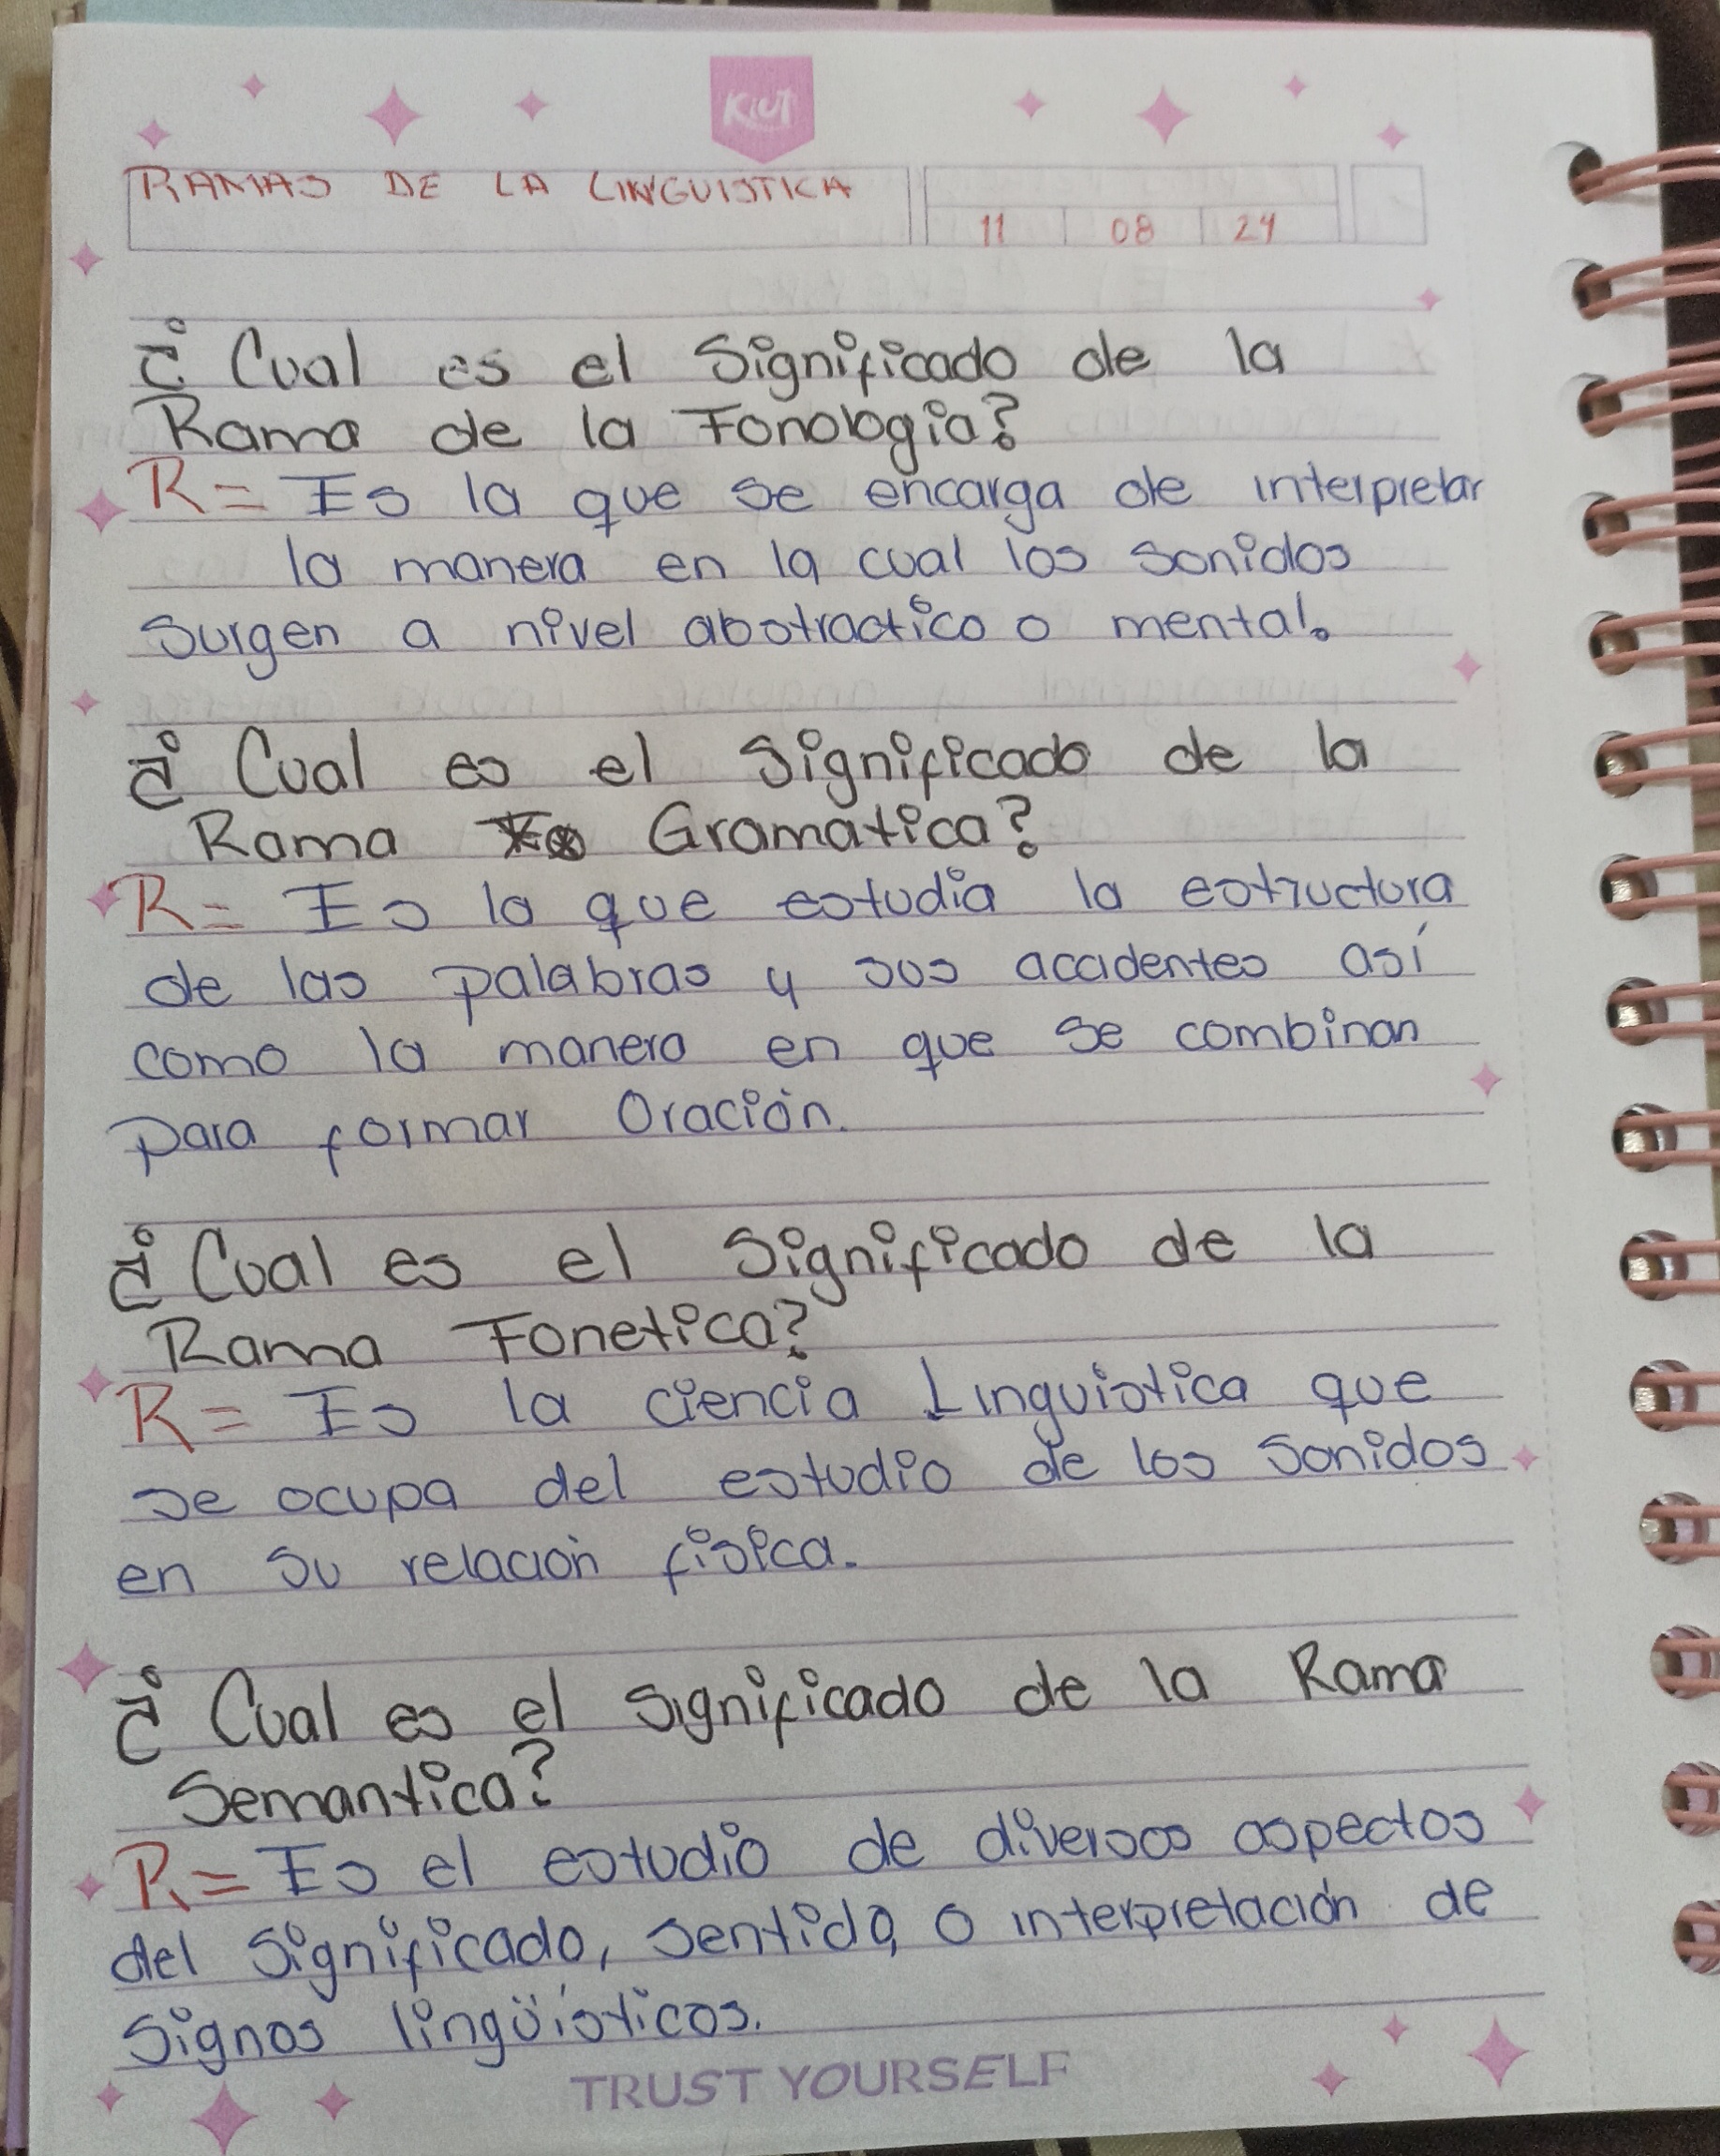 KIUT
RAMAS DE LA LINGUISTICA
11 08 24
¿Cual es el Significado de la
Rama de la Fonologia?
R= Es la que se encarga de interpretar
la manera en la cual los sonidos
surgen a nivel abstractico o mental.
¿Cual es el Significado de la
Rama Gramatica?
R= Es la que estudia la estructura
de las palabras y sus accidentes así
como la manera en que se combinan
para formar Oración.
¿Cual es el Significado de la
Rama Fonetica?
R= Es la ciencia Linguistica que
se ocupa del estudio de los Sonidos
en su relación fisica.
¿Cual es el significado de la Rama
Semantica?
R= Es el estudio de diversos aspectos
del Significado, sentido, o interpretación de
Signos lingüísticos.
TRUST YOURSELF